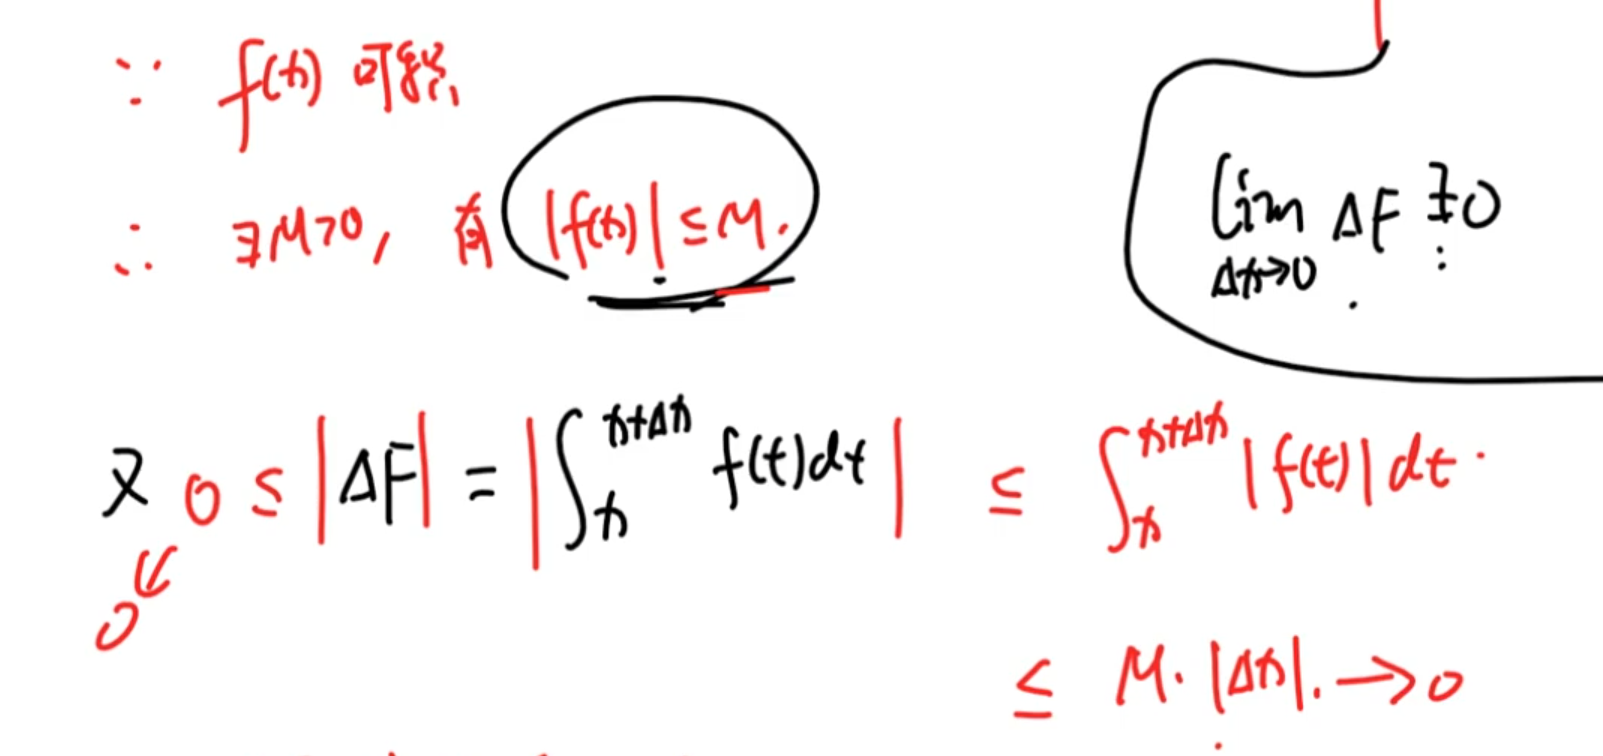 ∵ f(x) 可积,
∴ ∃M>0, 有 |f(x)| ≤ M.
lim ΔF ∃0
Δx→0
又 0 ≤ |ΔF| = |∫ₓ^(x+Δx) f(t)dt| ≤ ∫ₓ^(x+Δx) |f(t)| dt.
0
≤ M·|Δx|. → 0